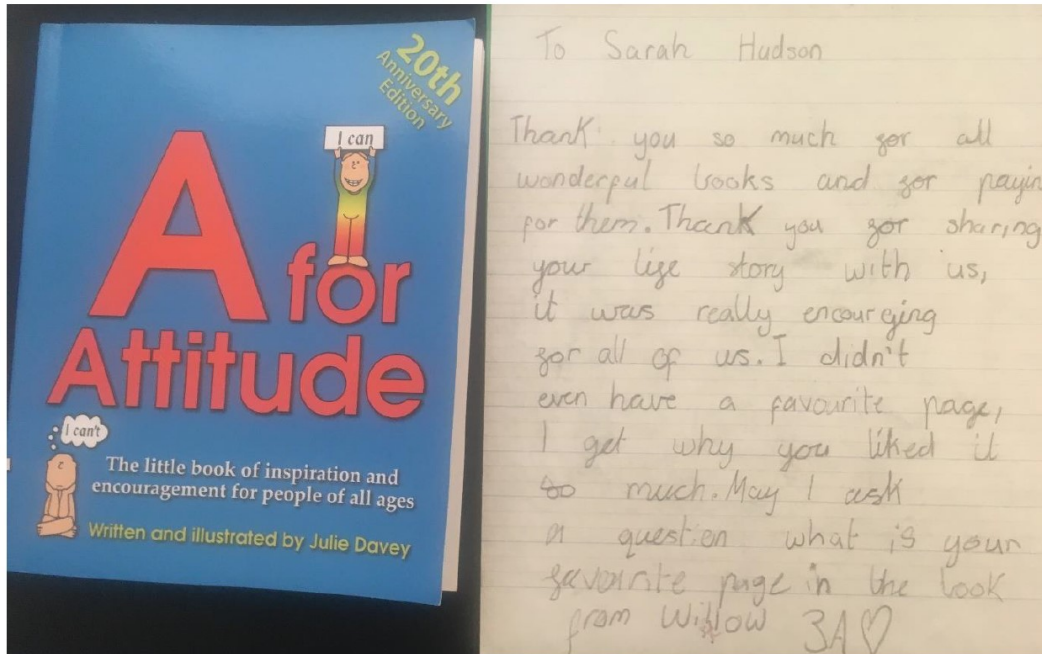 20th
Anniversary
Edition
I can
A for
Attitude
I can't
The little book of inspiration and
encouragement for people of all ages
Written and illustrated by Julie Davey
To Sarah Hudson
Thank you so much for all
wonderful books and for payin
for them. Thank you for sharing
your life story with us,
it was really encourging
for all of us. I didn't
even have a favourite page,
I get why you liked it
so much. May I ask
a question what is your
favourite page in the book
from Willow 3A♡